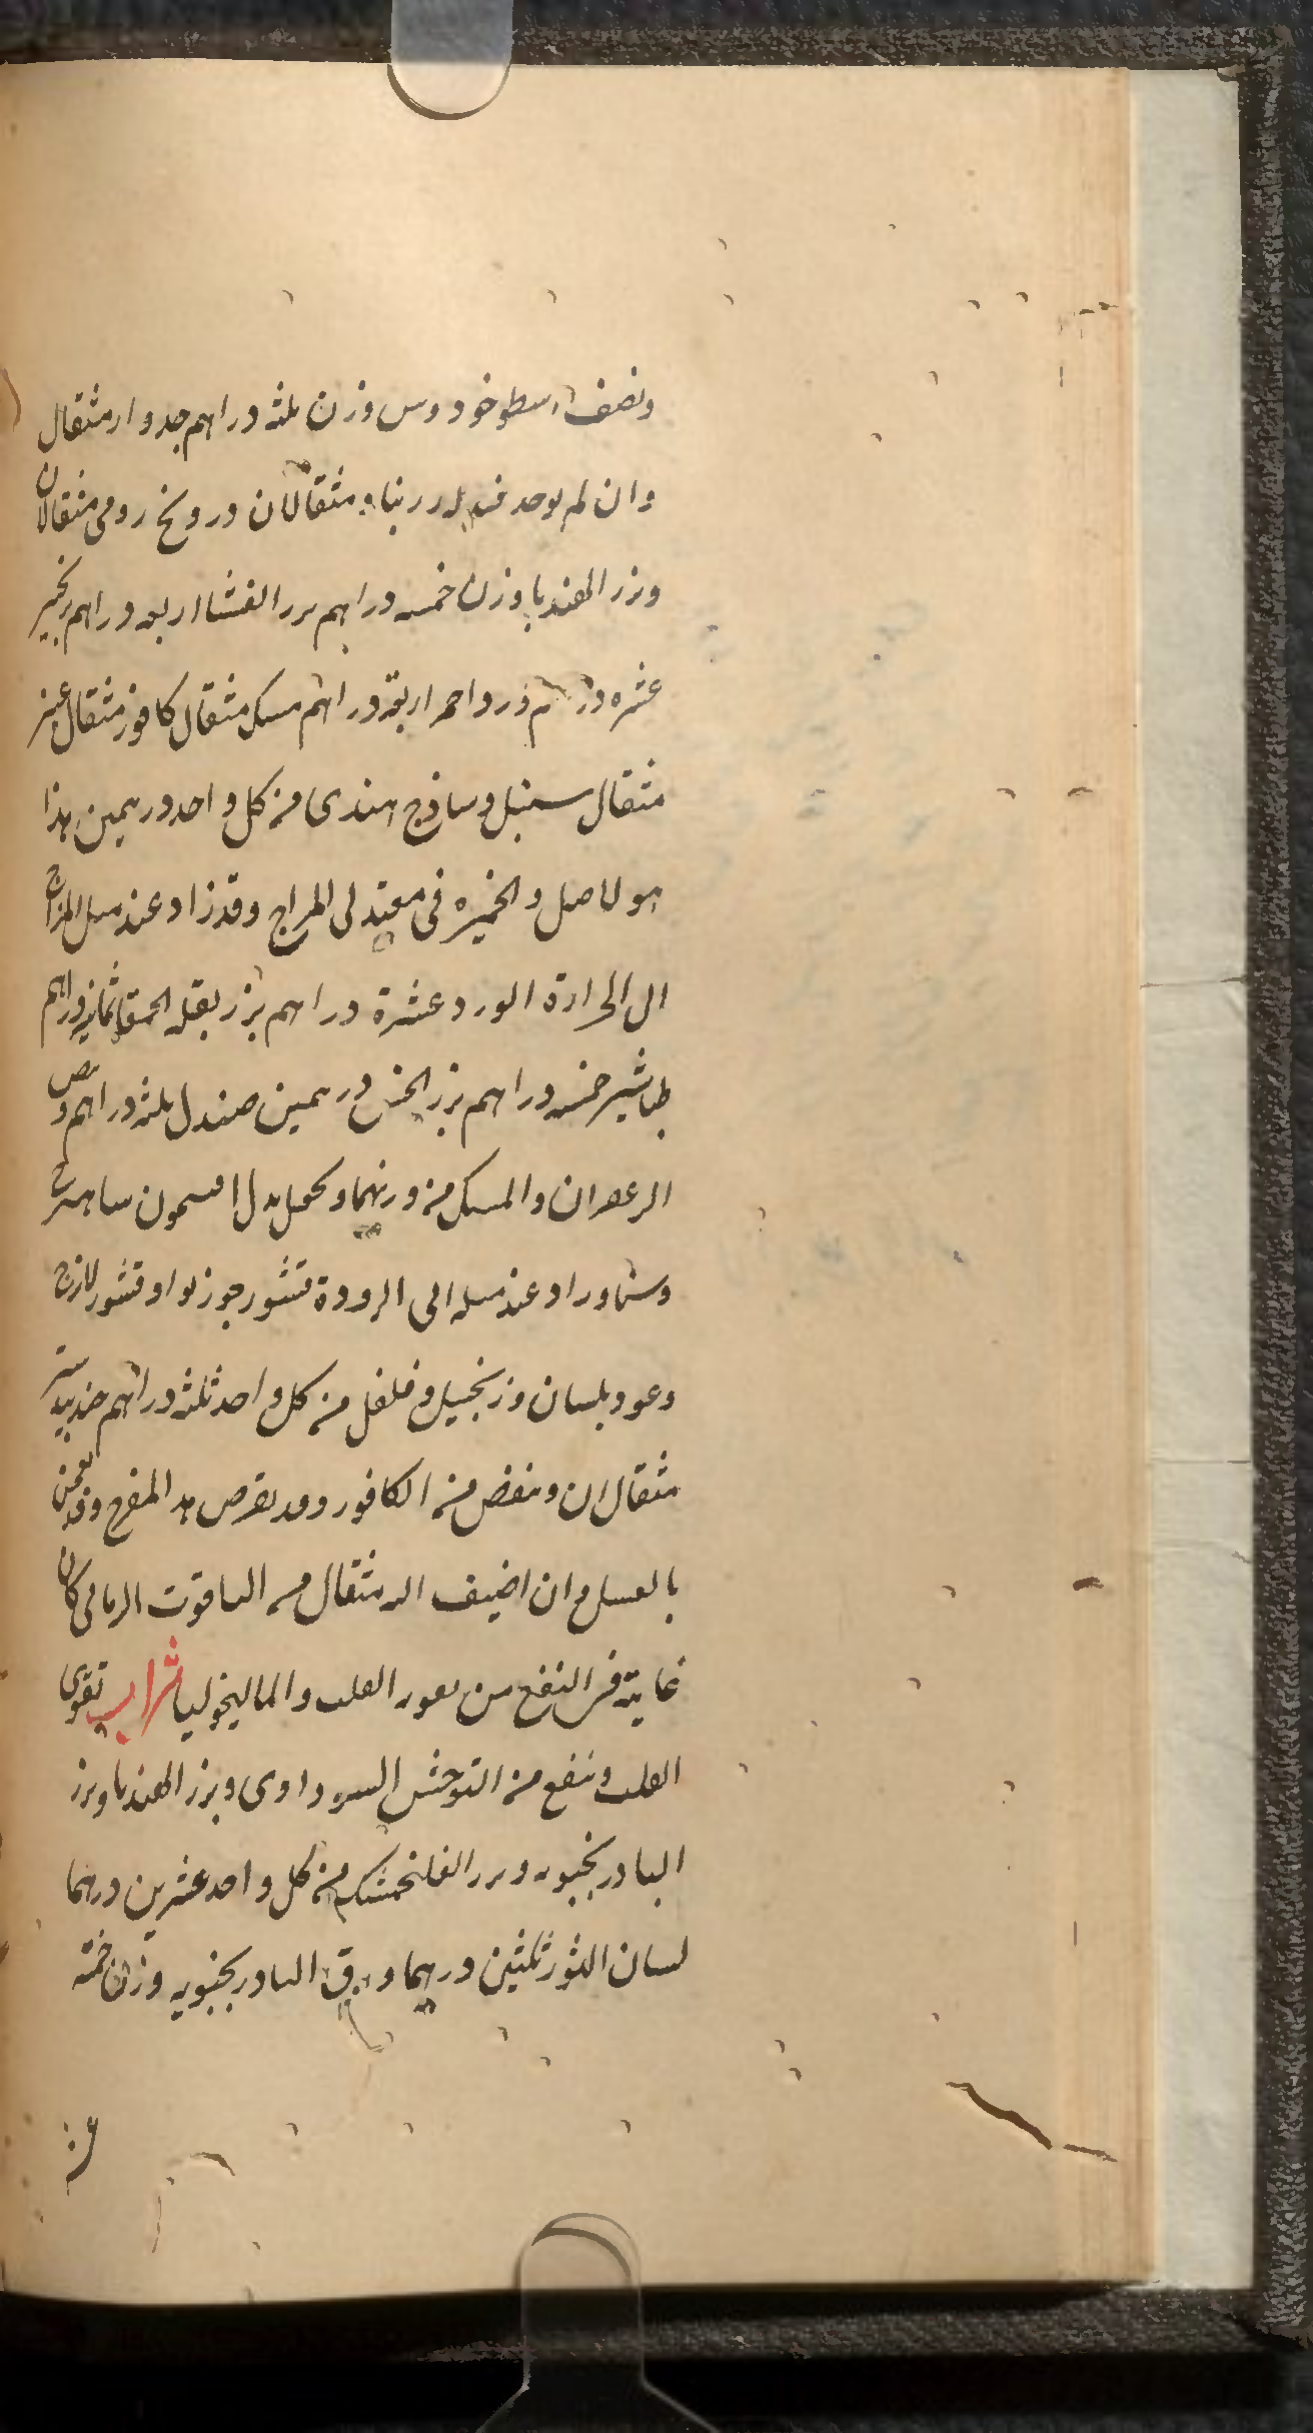 ونصف اسطوخودوس وزن ثلثه دراهم جدوار مثقال
وان لم يوجد فبدله زرنباد مثقالان درونخ رومى مثقالان
وبزر الهندبا وزن خمسه دراهم بزر القثا اربعه دراهم
عشره دراهم ورد احمر اربعة دراهم مسك مثقال كافور مثقال عنبر
مثقال سنبل وساذج هندى من كل واحد درهمين هذا
هو الاصل والخميره فى معتدلى المزاج وقد زاد عند ميل المزاج
الى الحرارة الورد عشرة دراهم بزر بقلة الحمقا ثمانيه دراهم
طباشير خمسه دراهم بزر الخس درهمين صندل ثلثه دراهم
الزعفران والمسك من وزنهما ويجعل بدل افتيمون شاهترج
وسنا وزاد عند ميله الى البرودة قشور جوزبوا وقشور الاترج
وعود بلسان وزنجبيل وفلفل من كل واحد ثلثه دراهم جندبيدستر
مثقالان وينقص منه الكافور وقد يقرص هذا المفرح وقد يعجن
بالعسل وان اضيف اليه مثقال من الياقوت الرمانى كان
غاية فى النفع من القلب والماليخوليا شراب يقوى
القلب وينفع من التوحش السوداوى وبزر الهندبا وبزر
البادرنجبويه وبزر الفلنجمشك من كل واحد عشرين درهما
لسان الثور ثلثين درهما ورق البادرنجبويه وزن خمسة